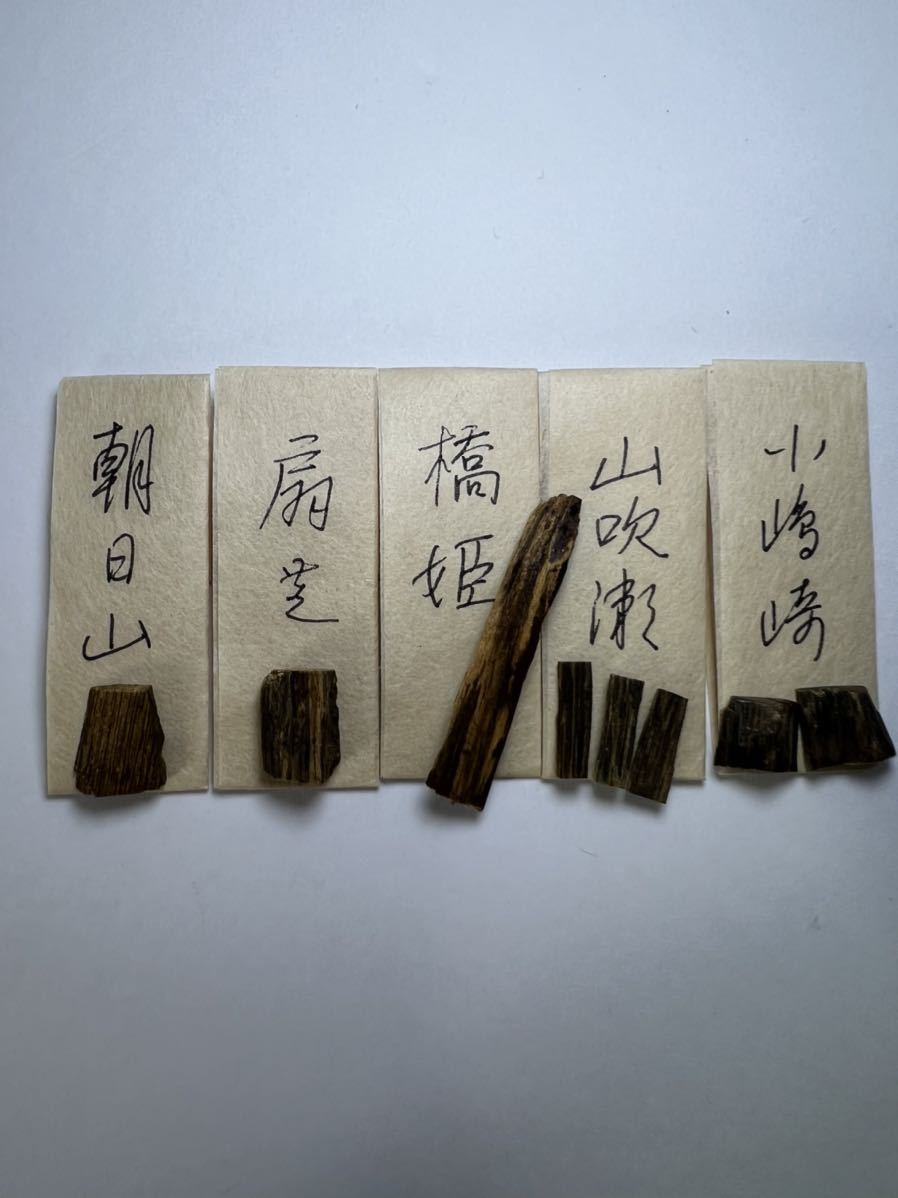 朝日山
扇芝
橋姫
山吹瀬
小嶋崎